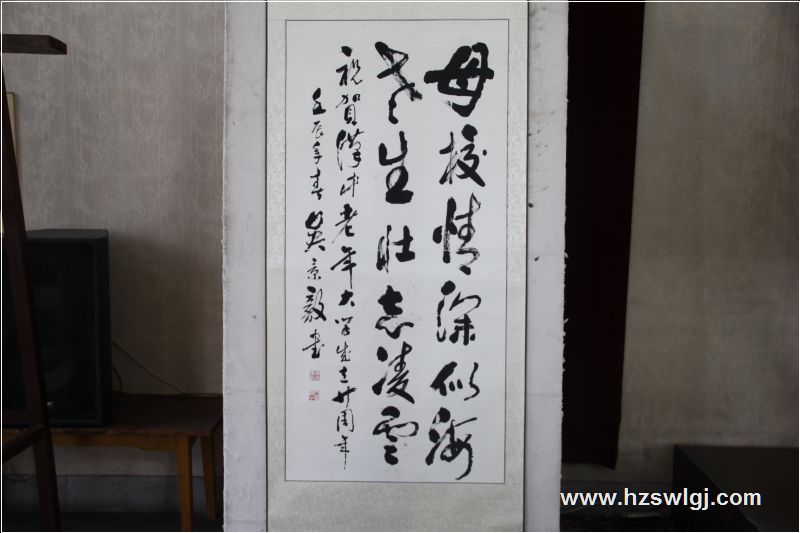 母校情深似海
老生壮志凌雲
祝賀漢中老年大学成立廿周年
壬辰年春 吴景毅書
www.hzswlgj.com